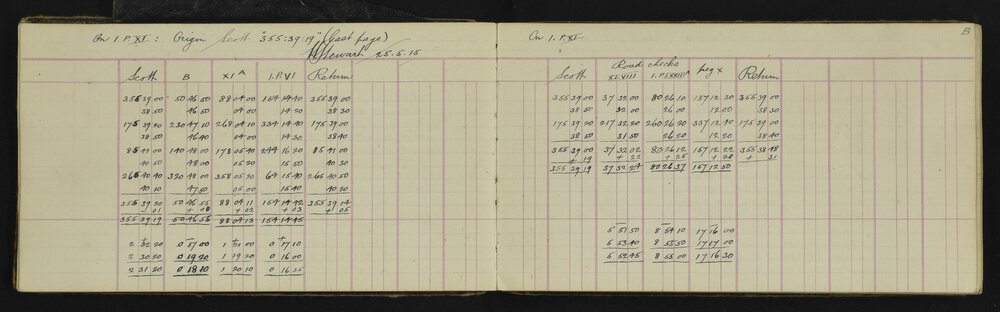 On I.P.XI: Origin Scott "355:39:19" (last page)
H Stewart 25.5.15
Scott B XI A I.P.VI Return
355 39 00 50 46 00 88 04 00 154 14 40 355 39 00
38 50 46 50 04 00 14 20 38 30
175 39 20 230 47 10 268 04 10 334 14 40 175 39 00
38 50 46 40 04 00 14 30 38 40
85 41 00 140 48 00 178 05 40 244 16 20 85 41 00
40 50 48 00 05 20 15 50 40 30
265 40 40 320 48 00 358 05 20 64 15 40 265 40 50
40 10 47 50 05 00 15 40 40 20
355 39 20 50 46 55 88 04 11 154 14 42 355 39 14
- 01 + 00 + 02 + 03 + 05
355 39 19 50 46 55 88 04 13 154 14 45
2 32 20 0 17 00 1 20 00 0 17 10
2 30 20 0 19 20 1 19 20 0 16 00
2 31 20 0 18 10 1 20 10 0 16 35
On I.P.XI
B
Road checks
Scott XI.VIII I.P.LXXIII peg x Return
355 39 00 37 32 00 80 26 10 157 12 30 355 39 00
38 50 32 00 26 00 12 00 38 30
175 39 00 217 32 20 260 26 20 337 12 40 175 39 00
38 50 31 50 26 20 12 20 38 40
355 39 00 37 32 02 80 26 12 157 12 22 355 38 48
+ 19 + 22 + 25 + 28 + 31
355 39 19 37 32 24 80 26 37 157 12 50
5 51 50 8 54 10 17 16 00
5 53 40 8 55 50 17 17 00
5 52 45 8 55 00 17 16 30